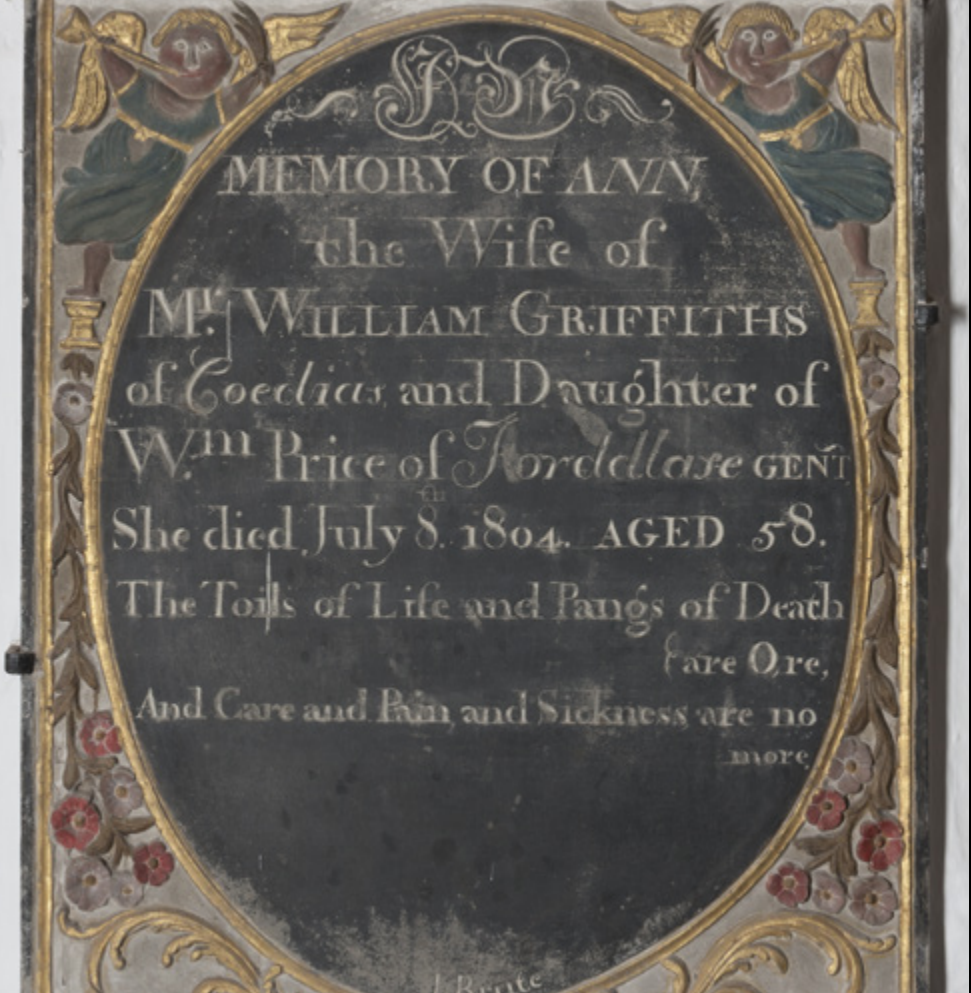 In
MEMORY OF ANN,
the Wife of
Mr. WILLIAM GRIFFITHS
of Coedias and Daughter of
Wm. Price of Fforddlase GENT
She died July 8th. 1804. AGED 58.
The Toils of Life and Pangs of Death
are Ore,
And Care and Pain and Sickness are no
more
J. Brute